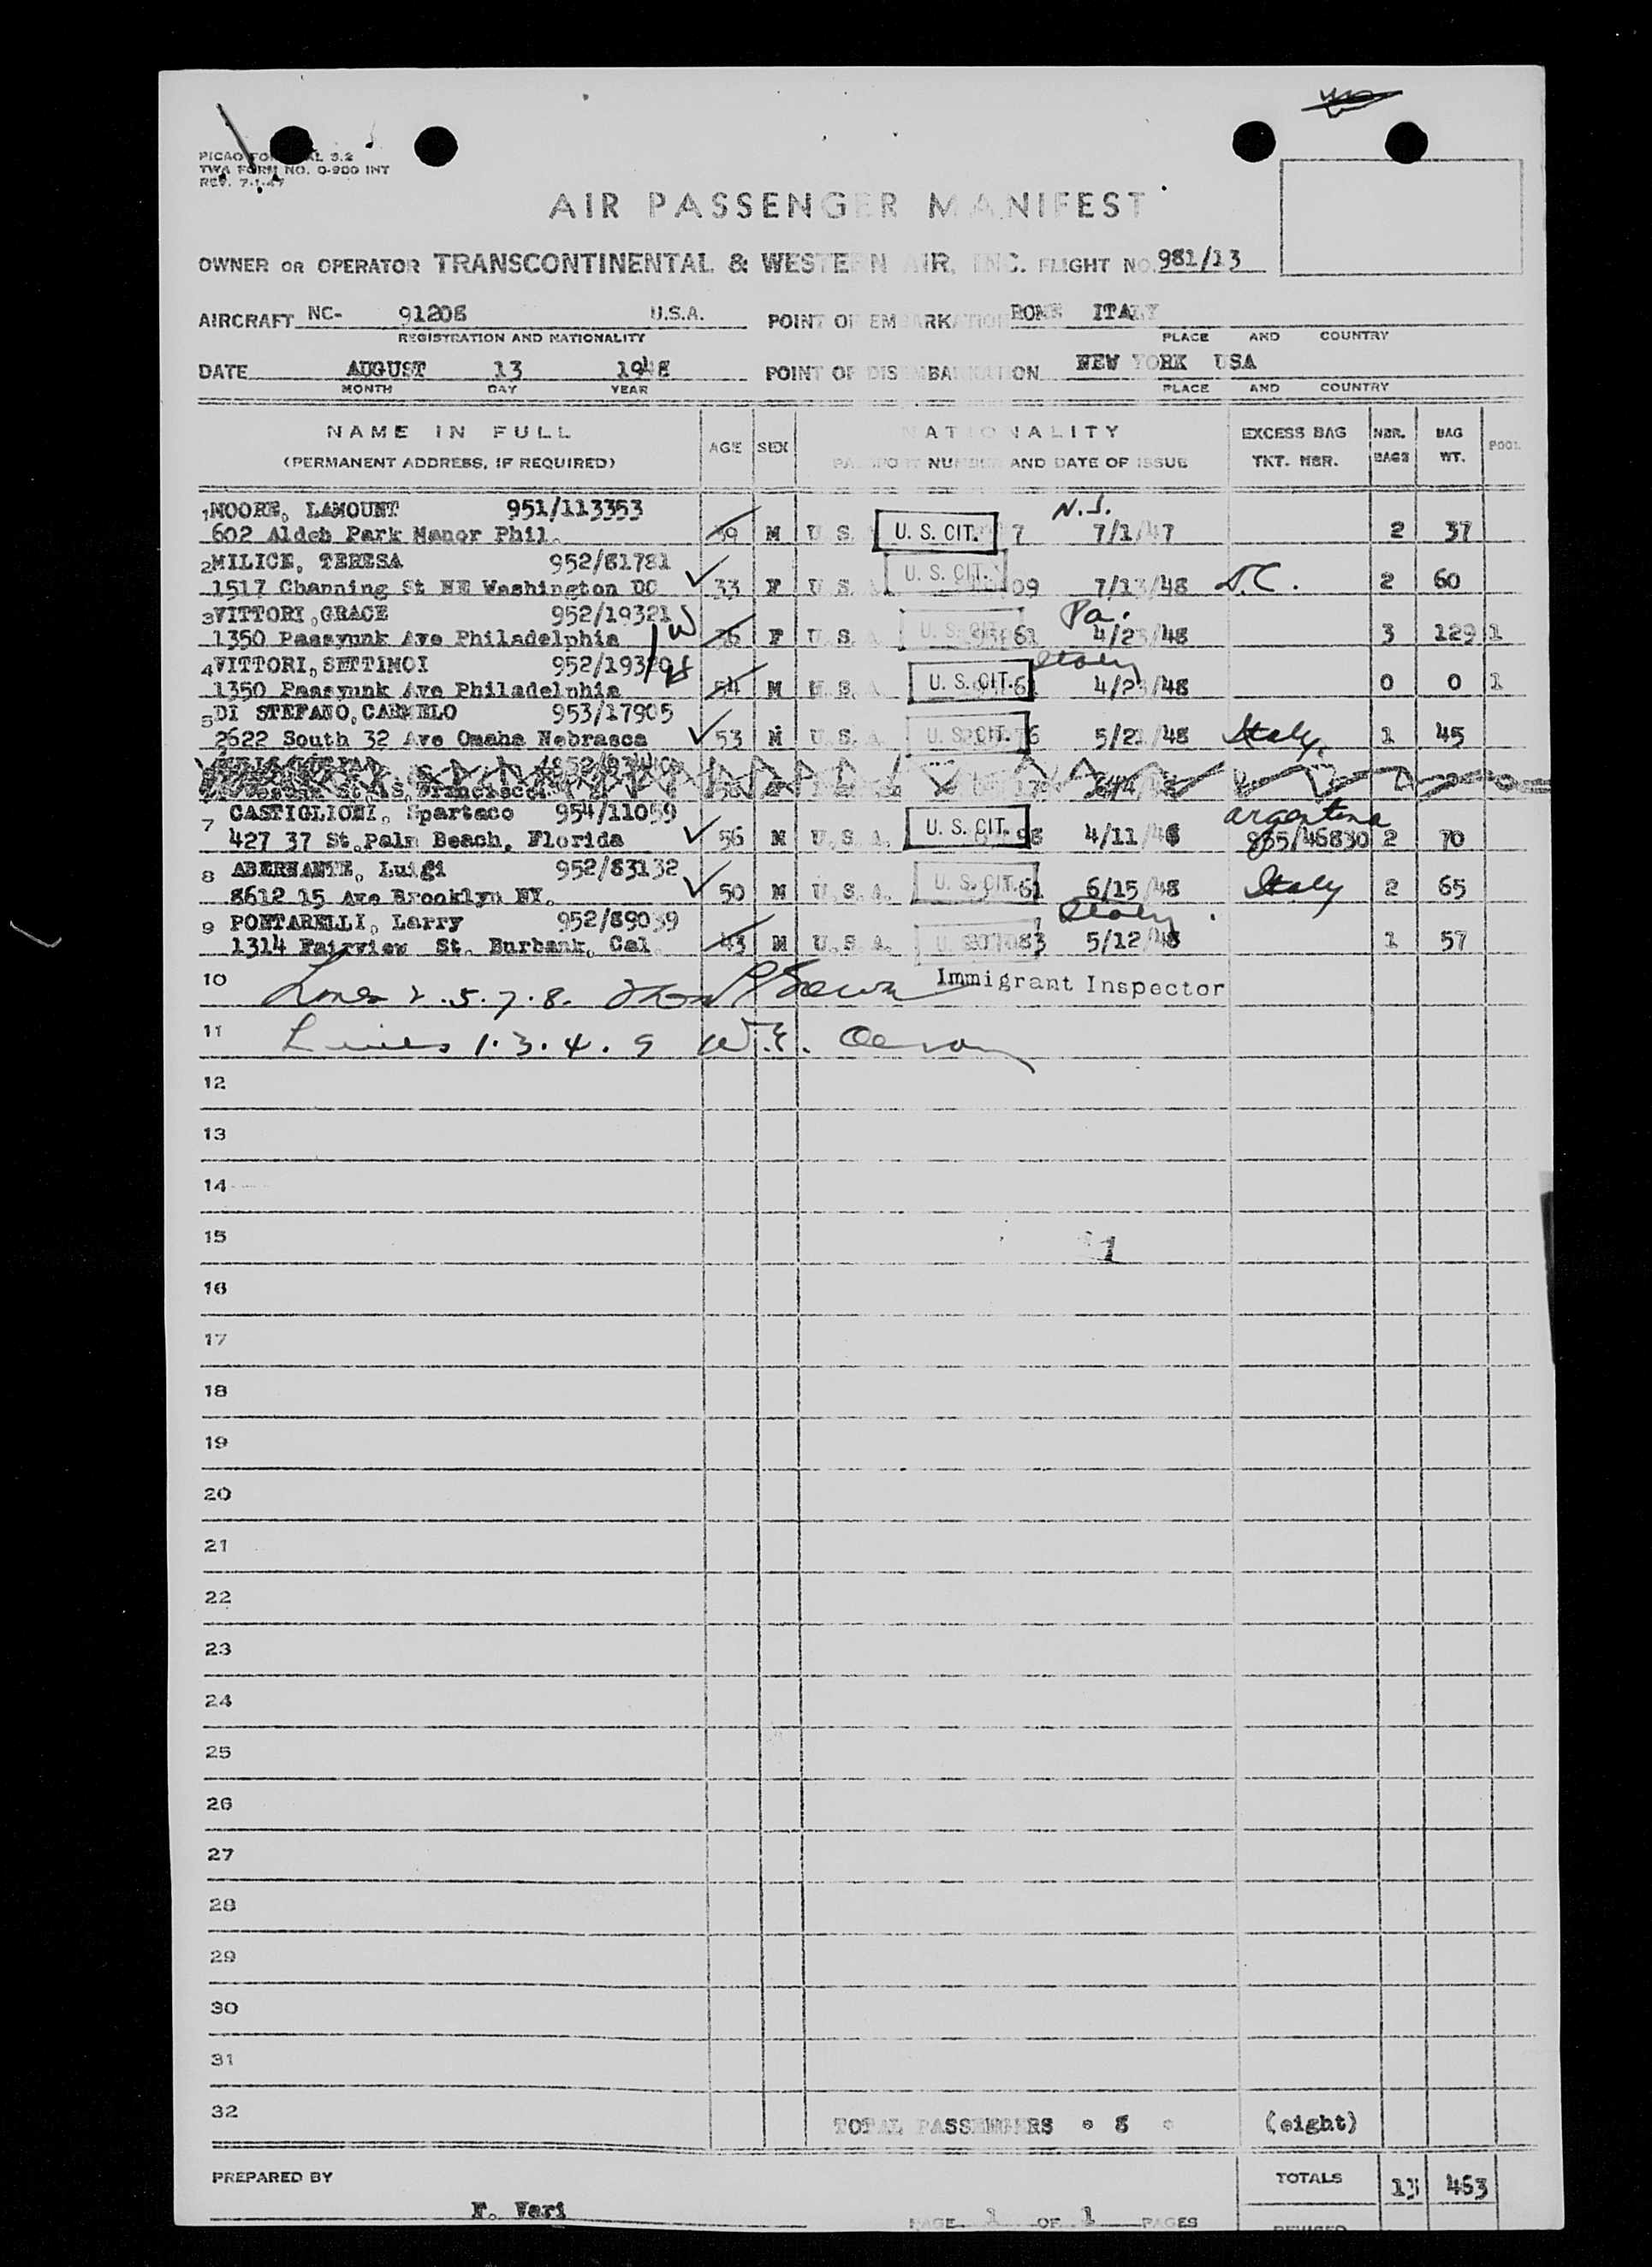 TWA FORM NO. 0-900 INT
REV. 7-1-47
AIR PASSENGER MANIFEST
OWNER OR OPERATOR TRANSCONTINENTAL & WESTERN AIR, INC. FLIGHT NO. 981/13
AIRCRAFT NC- 91208 U.S.A. POINT OF EMBARKATION ROME ITALY
REGISTRATION AND NATIONALITY PLACE AND COUNTRY
DATE AUGUST 13 1948 POINT OF DISEMBARKATION NEW YORK USA
MONTH DAY YEAR PLACE AND COUNTRY
NAME IN FULL AGE SEX NATIONALITY EXCESS BAG NBR. BAG POOL
(PERMANENT ADDRESS, IF REQUIRED) PASSPORT NUMBER AND DATE OF ISSUE TKT. NBR. BAGS WT.
1 MOORE, LAMOUNT 951/113353 N.J.
602 Aldeb Park Manor Phil. 39 M U S U. S. CIT. 7 7/1/47 2 37
2 MILICE, TERESA 952/81781
1517 Channing St NE Washington DC 33 F U S. U. S. CIT. 09 7/13/48 D.C. 2 60
3 VITTORI, GRACE 952/19321 Pa.
1350 Paasyunk Ave Philadelphia F U S. U. S. CIT. 61 4/23/48 3 129 1
4 VITTORI, SETTIMOI Italy
1350 Paasyunk Ave Philadelphia 54 M U S. U. S. CIT. 4/23/48 0 0 1
5 DI STEFANO, CARMELO 953/17905
2622 South 32 Ave Omaha Nebrasca 53 M U.S.A. U. S. CIT. 6 5/21/48 Italy. 1 45
7 CASTIGLIONI, Spartaco 954/11059 argentina
427 37 St. Palm Beach, Florida 56 M U.S.A. U. S. CIT. 4/11/46 985/46830 2 70
8 ABERNANTE, Luigi 952/83132
8612 15 Ave Brooklyn NY. 50 M U.S.A. U. S. CIT. 61 6/15/48 Italy 2 65
9 PONTARELLI, Larry 952/89039 Italy
1314 Fairview St. Burbank, Cal. 43 M U.S.A. U. S. 83 5/12/48 1 57
10 Lines 2.5.7.8. Immigrant Inspector
11 Lines 1.3.4.9 W.E.
12
13
14
15 1
16
17
18
19
20
21
22
23
24
25
26
27
28
29
30
31
32 TOTAL PASSENGERS 8 (eight)
PREPARED BY TOTALS 13 463
F. Vari
PAGE 1 OF 1 PAGES